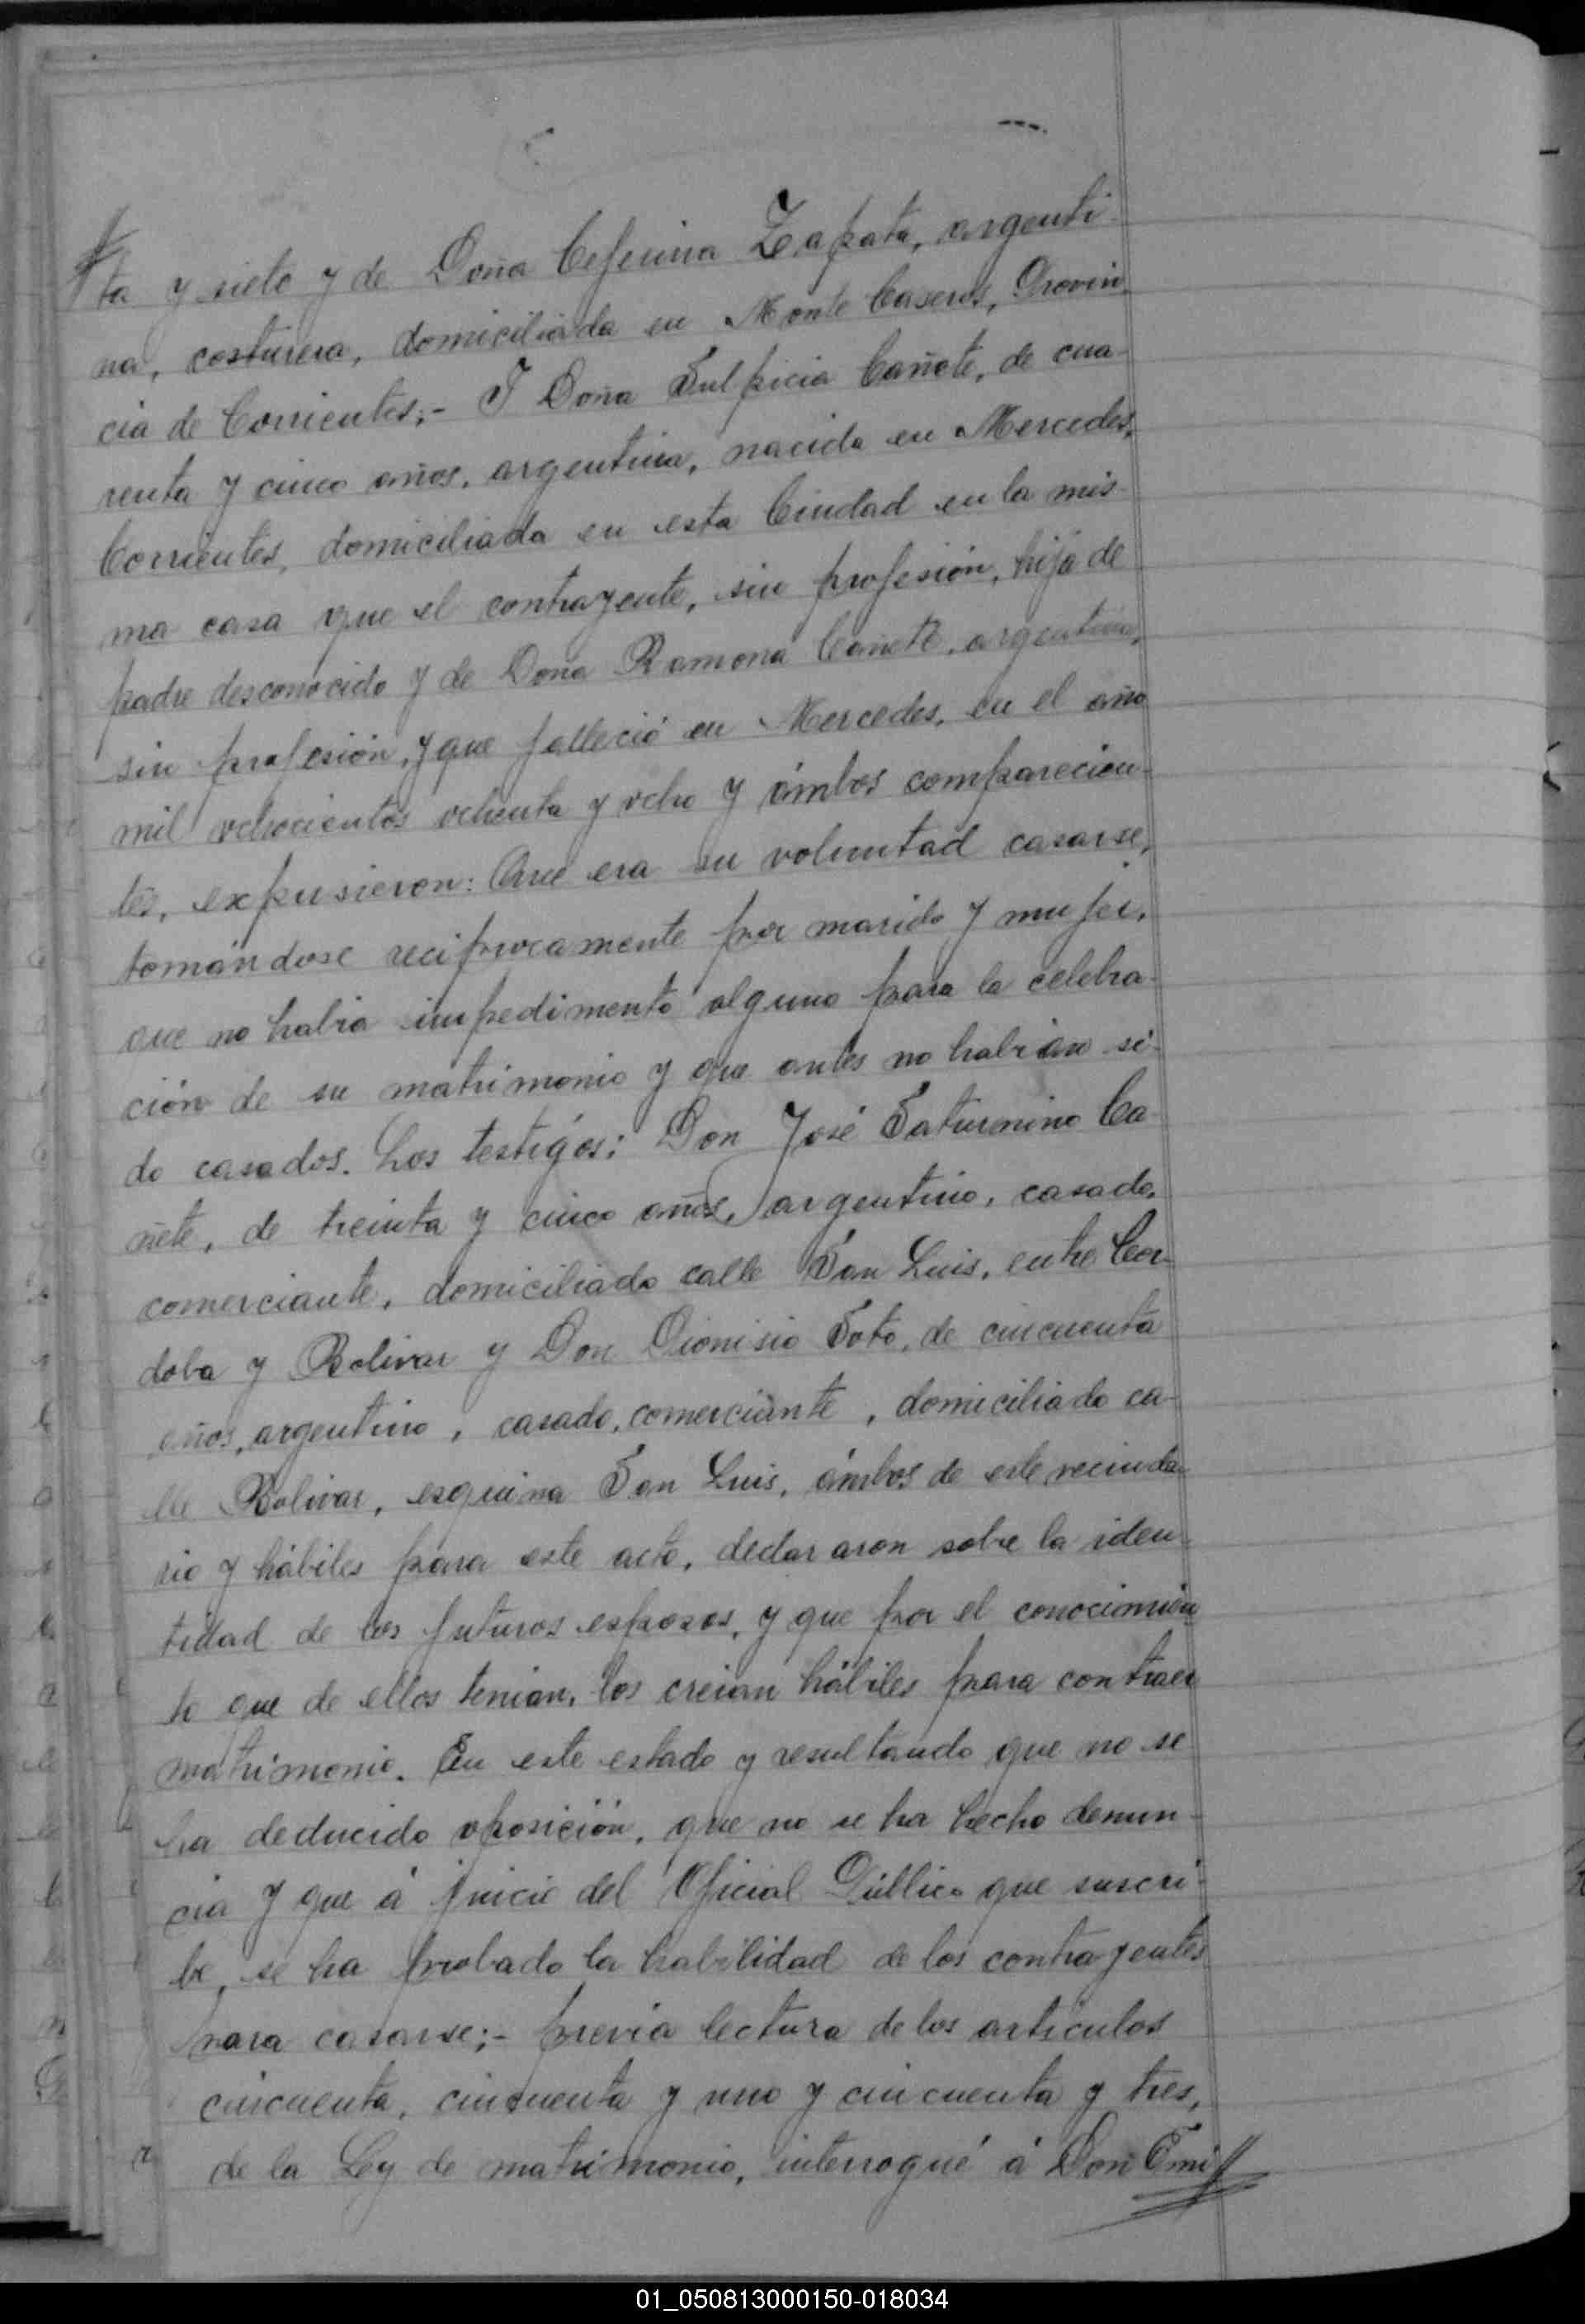 ta y siete y de Doña Ceferina Zapata, argenti-
na, costurera, domiciliada en Monte Caseros, Provin-
cia de Corrientes;- Y Doña Sulpicia Cañete, de cua-
renta y cinco años, argentina, nacida en Mercedes,
Corrientes, domiciliada en esta Ciudad en la mis-
ma casa que el contrayente, sin profesión, hija de
padre desconocido y de Doña Ramona Cañete, argentina,
sin profesión, y que falleció en Mercedes, en el año
mil ochocientos ochenta y ocho y ámbos comparecien-
tes, expusieron: Que era su voluntad casarse,
tomándose recíprocamente por marido y mujer,
que no habia impedimento alguno para la celebra-
ción de su matrimonio y que antes no habian si-
do casados. Los testigos: Don José Saturnino Ca-
ñete, de treinta y cinco años, argentino, casado,
comerciante, domiciliado calle San Luis, entre Cor-
doba y Bolivar y Don Dionisio Soto, de cincuenta
años, argentino, casado, comerciante, domiciliado ca-
lle Bolivar, esquina San Luis, ámbos de este vecinda-
rio y hábiles para este acto, declararon sobre la iden-
tidad de los futuros esposos, y que por el conocimien-
to que de ellos tenian, los creian hábiles para contraer
matrimonio. En este estado y resultando que no se
ha deducido oposición, que no se ha hecho denun-
cia y que á juicio del Oficial Público que suscri-
be, se ha probado la habilidad de los contrayentes
para casarse;- previa lectura de los artículos
cincuenta, cincuenta y uno y cincuenta y tres,
de la Ley de matrimonio, interrogué á Don Emi
01_050813000150-018034